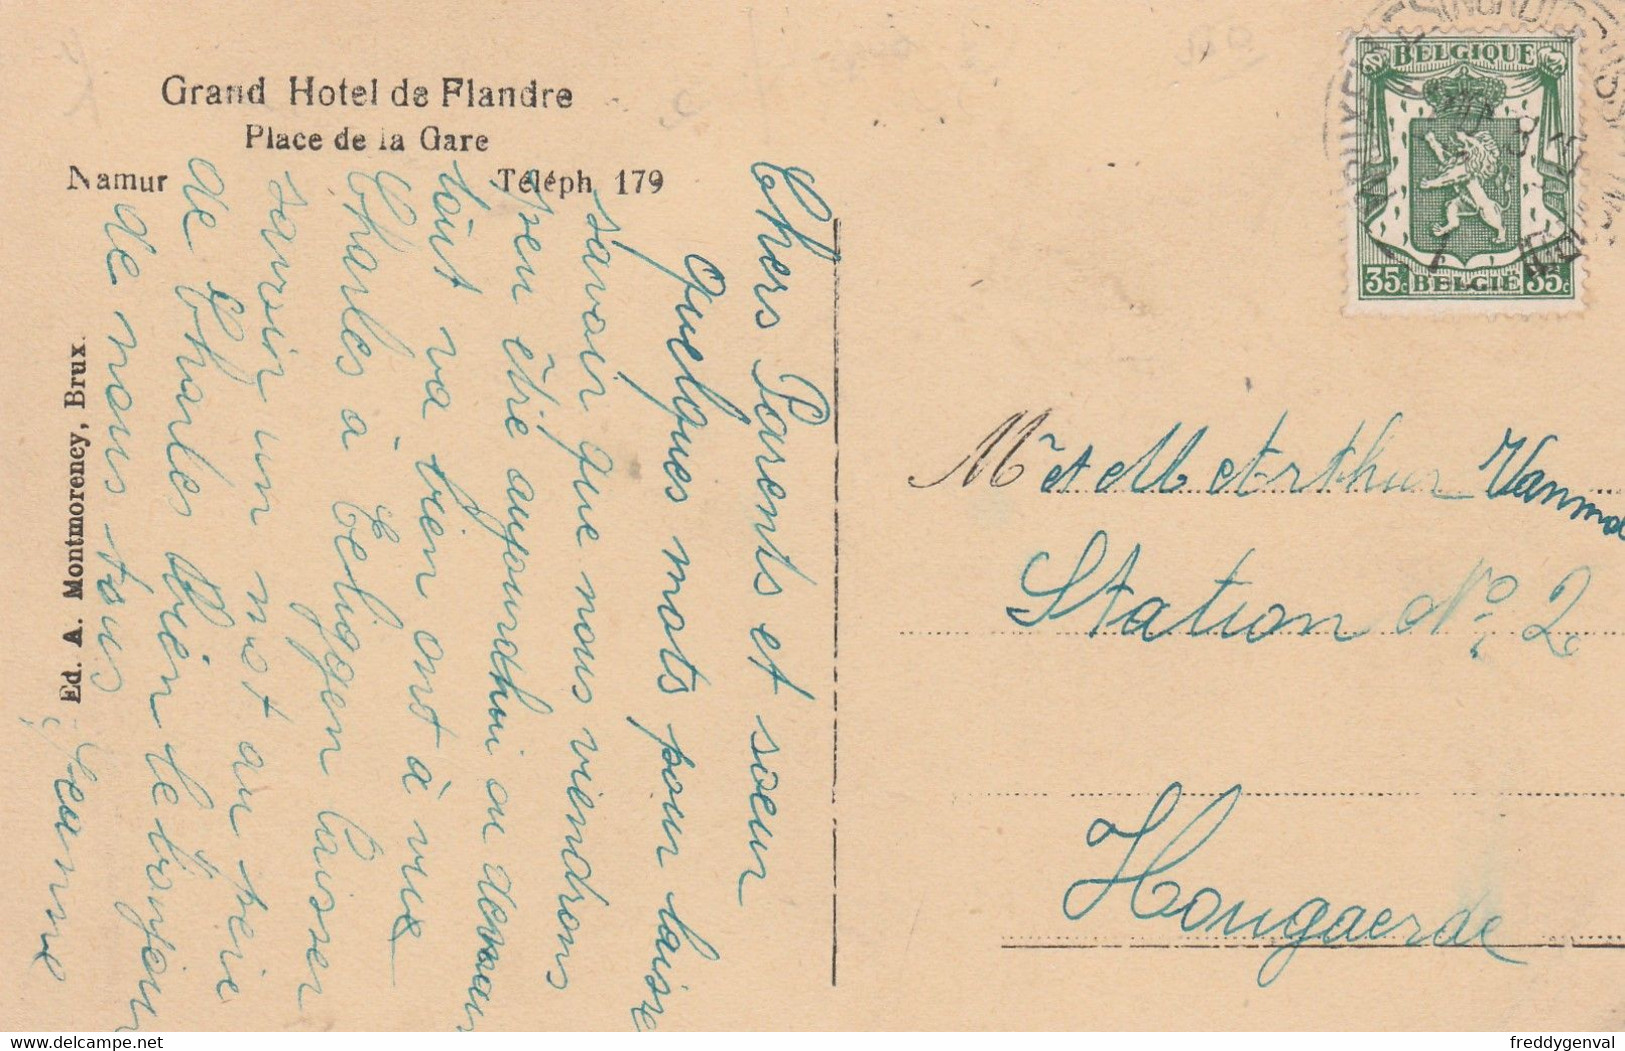 Grand Hotel de Flandre
Place de la Gare
Namur Téléph 179
Ed. A. Montmorency, Brux.
Chers Parents et soeur
Quelques mots pour laisse
savoir que nous viendrons
peu être aujourdhui ou
tout va bien ont à vue
Charles à laisser
savoir un mot
de Charles bien le
de nous tous
Jeanne
BELGIQUE
35c BELGIE 35c
Mr et M Arthur
Station No 2
Hougaerde
delcampe.net
freddygenval